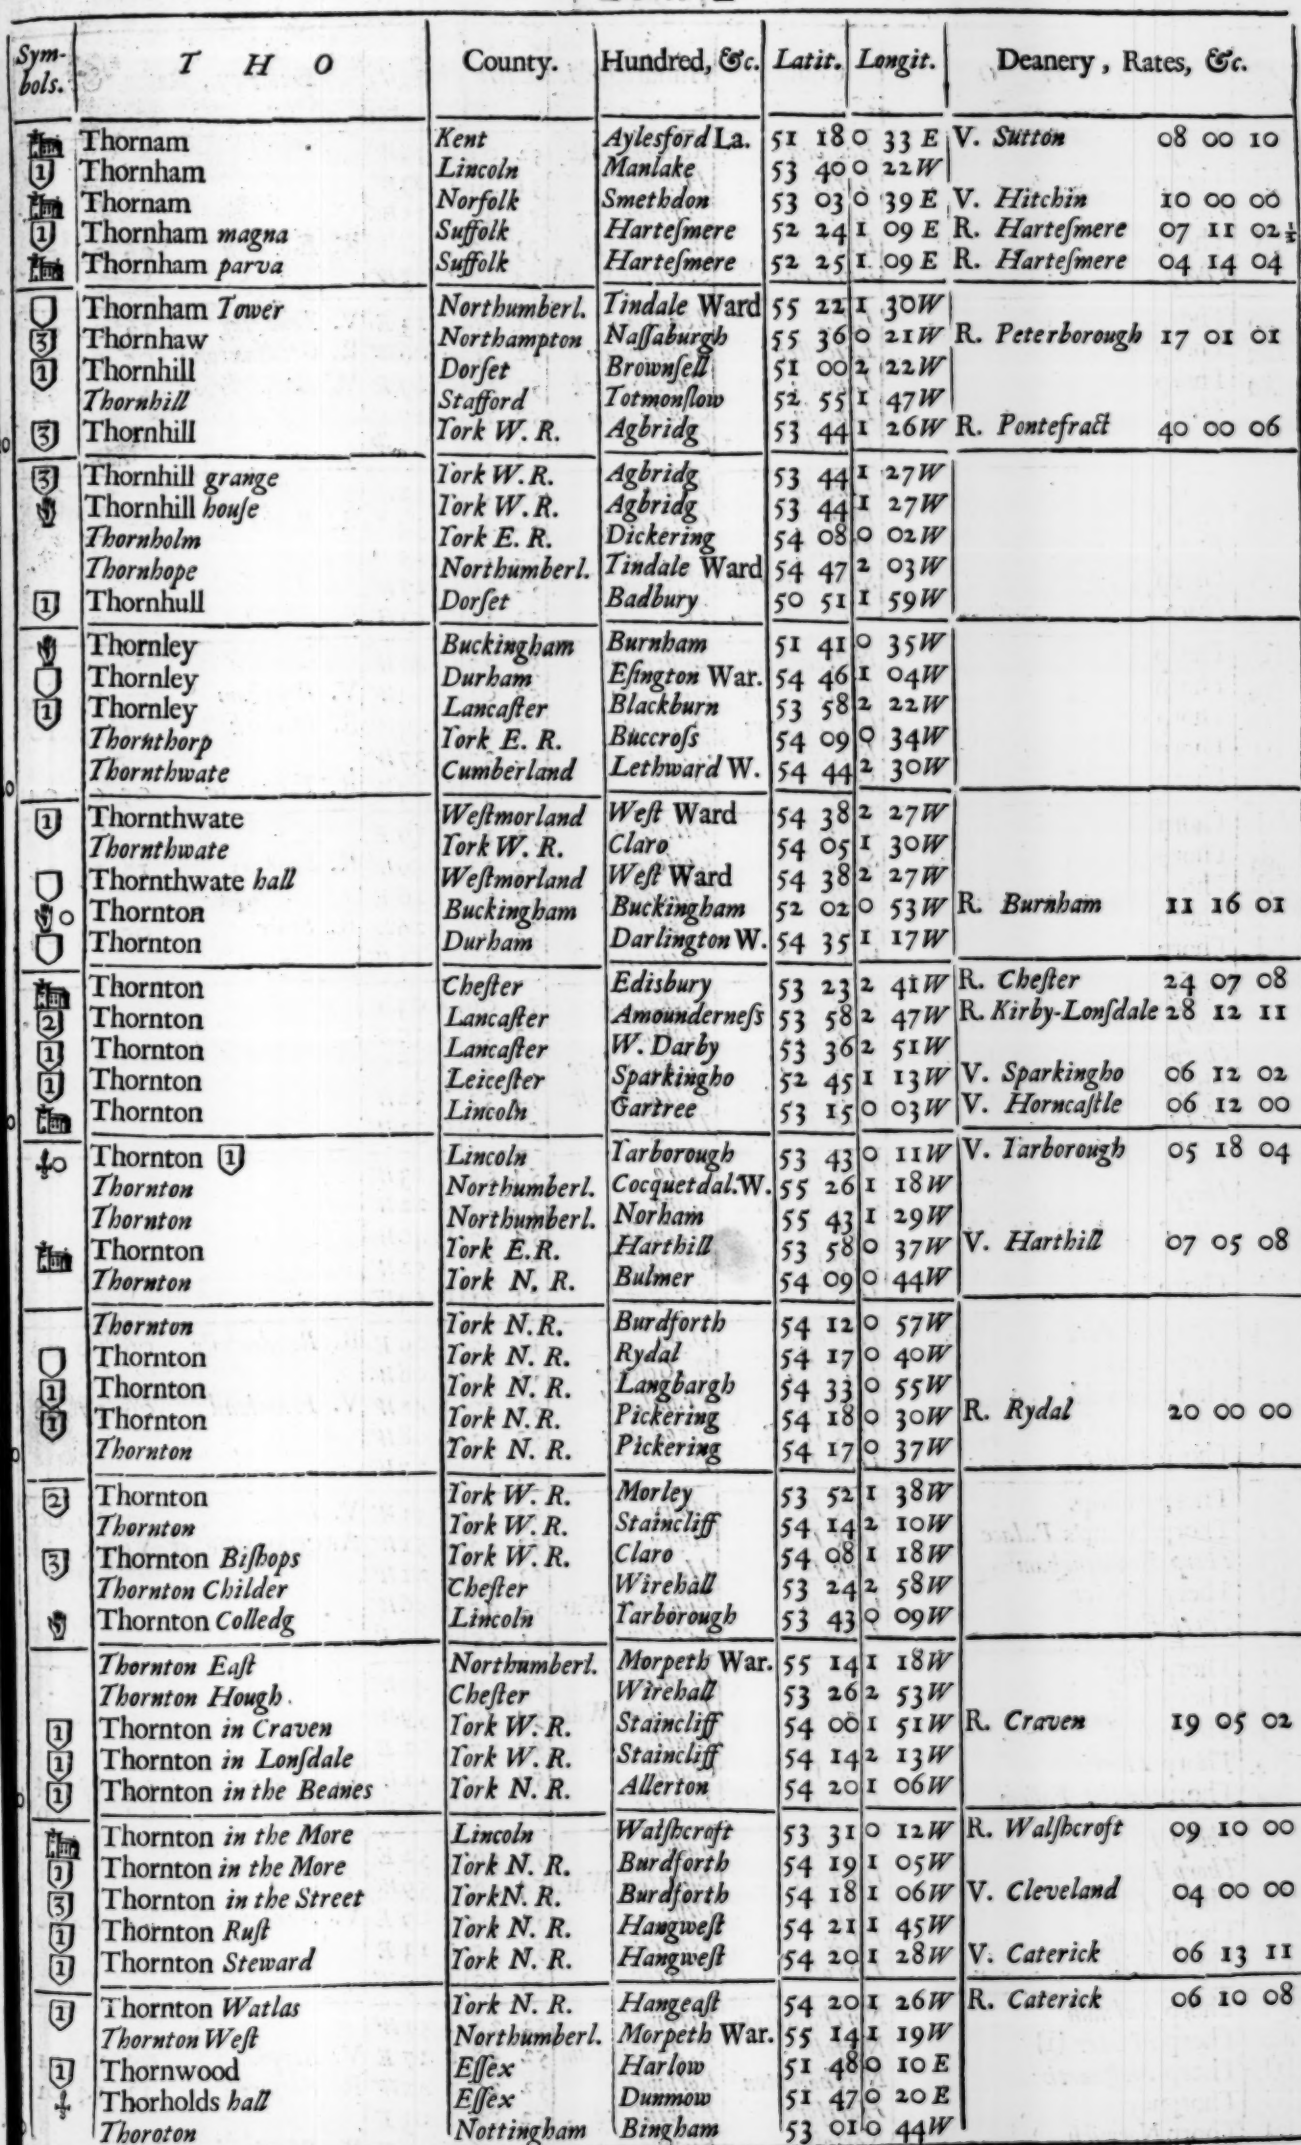 Sym-bols. T H O County. Hundred, &c. Latit. Longit. Deanery, Rates, &c.
Thornam Kent Aylesford La. 51 18 0 33 E V. Sutton 08 00 10
1 Thornham Lincoln Manlake 53 40 0 22 W
Thornam Norfolk Smethdon 53 03 0 39 E V. Hitchin 10 00 00
1 Thornham magna Suffolk Harteſmere 52 24 1 09 E R. Harteſmere 07 11 02½
Thornham parva Suffolk Harteſmere 52 25 1 09 E R. Harteſmere 04 14 04
Thornham Tower Northumberl. Tindale Ward 55 22 1 30 W
3 Thornhaw Northampton Naſſaburgh 55 36 0 21 W R. Peterborough 17 01 01
1 Thornhill Dorſet Brownſell 51 00 2 22 W
Thornhill Stafford Totmonſlow 52 55 1 47 W
3 Thornhill York W. R. Agbridg 53 44 1 26 W R. Pontefract 40 00 06
3 Thornhill grange York W. R. Agbridg 53 44 1 27 W
Thornhill houſe York W. R. Agbridg 53 44 1 27 W
Thornholm York E. R. Dickering 54 08 0 02 W
Thornhope Northumberl. Tindale Ward 54 47 2 03 W
1 Thornhull Dorſet Badbury 50 51 1 59 W
Thornley Buckingham Burnham 51 41 0 35 W
Thornley Durham Eſington War. 54 46 1 04 W
1 Thornley Lancaſter Blackburn 53 58 2 22 W
Thornthorp York E. R. Buccroſs 54 09 0 34 W
Thornthwate Cumberland Lethward W. 54 44 2 30 W
1 Thornthwate Weſtmorland Weſt Ward 54 38 2 27 W
Thornthwate York W. R. Claro 54 05 1 30 W
Thornthwate hall Weſtmorland Weſt Ward 54 38 2 27 W
Thornton Buckingham Buckingham 52 02 0 53 W R. Burnham 11 16 01
Thornton Durham Darlington W. 54 35 1 17 W
Thornton Cheſter Edisbury 53 23 2 41 W R. Cheſter 24 07 08
2 Thornton Lancaſter Amounderneſs 53 58 2 47 W R. Kirby-Lonſdale 28 12 11
1 Thornton Lancaſter W. Darby 53 36 2 51 W
1 Thornton Leiceſter Sparkingho 52 45 1 13 W V. Sparkingho 06 12 02
Thornton Lincoln Gartree 53 15 0 03 W V. Horncaſtle 06 12 00
Thornton 1 Lincoln Yarborough 53 43 0 11 W V. Yarborough 05 18 04
Thornton Northumberl. Cocquetdal. W. 55 26 1 18 W
Thornton Northumberl. Norham 55 43 1 29 W
Thornton York E. R. Harthill 53 58 0 37 W V. Harthill 07 05 08
Thornton York N. R. Bulmer 54 09 0 44 W
Thornton York N. R. Burdforth 54 12 0 57 W
Thornton York N. R. Rydal 54 17 0 40 W
1 Thornton York N. R. Langbargh 54 33 0 55 W
1 Thornton York N. R. Pickering 54 18 0 30 W R. Rydal 20 00 00
Thornton York N. R. Pickering 54 17 0 37 W
2 Thornton York W. R. Morley 53 52 1 38 W
Thornton York W. R. Staincliff 54 14 2 10 W
3 Thornton Biſhops York W. R. Claro 54 08 1 18 W
Thornton Childer Cheſter Wirehall 53 24 2 58 W
Thornton Colledg Lincoln Yarborough 53 43 0 09 W
Thornton Eaſt Northumberl. Morpeth War. 55 14 1 18 W
Thornton Hough. Cheſter Wirehall 53 26 2 53 W
1 Thornton in Craven York W. R. Staincliff 54 00 1 51 W R. Craven 19 05 02
1 Thornton in Lonſdale York W. R. Staincliff 54 14 2 13 W
1 Thornton in the Beanes York N. R. Allerton 54 20 1 06 W
Thornton in the More Lincoln Walſhcroft 53 31 0 12 W R. Walſhcroft 09 10 00
1 Thornton in the More York N. R. Burdforth 54 19 1 05 W
3 Thornton in the Street York N. R. Burdforth 54 18 1 06 W V. Cleveland 04 00 00
1 Thornton Ruſt York N. R. Hangweſt 54 21 1 45 W
1 Thornton Steward York N. R. Hangweſt 54 20 1 28 W V. Caterick 06 13 11
1 Thornton Watlas York N. R. Hangeaſt 54 20 1 26 W R. Caterick 06 10 08
Thornton Weſt Northumberl. Morpeth War. 55 14 1 19 W
1 Thornwood Eſſex Harlow 51 48 0 10 E
Thorholds hall Eſſex Dunmow 51 47 0 20 E
Thoroton Nottingham Bingham 53 01 0 44 W